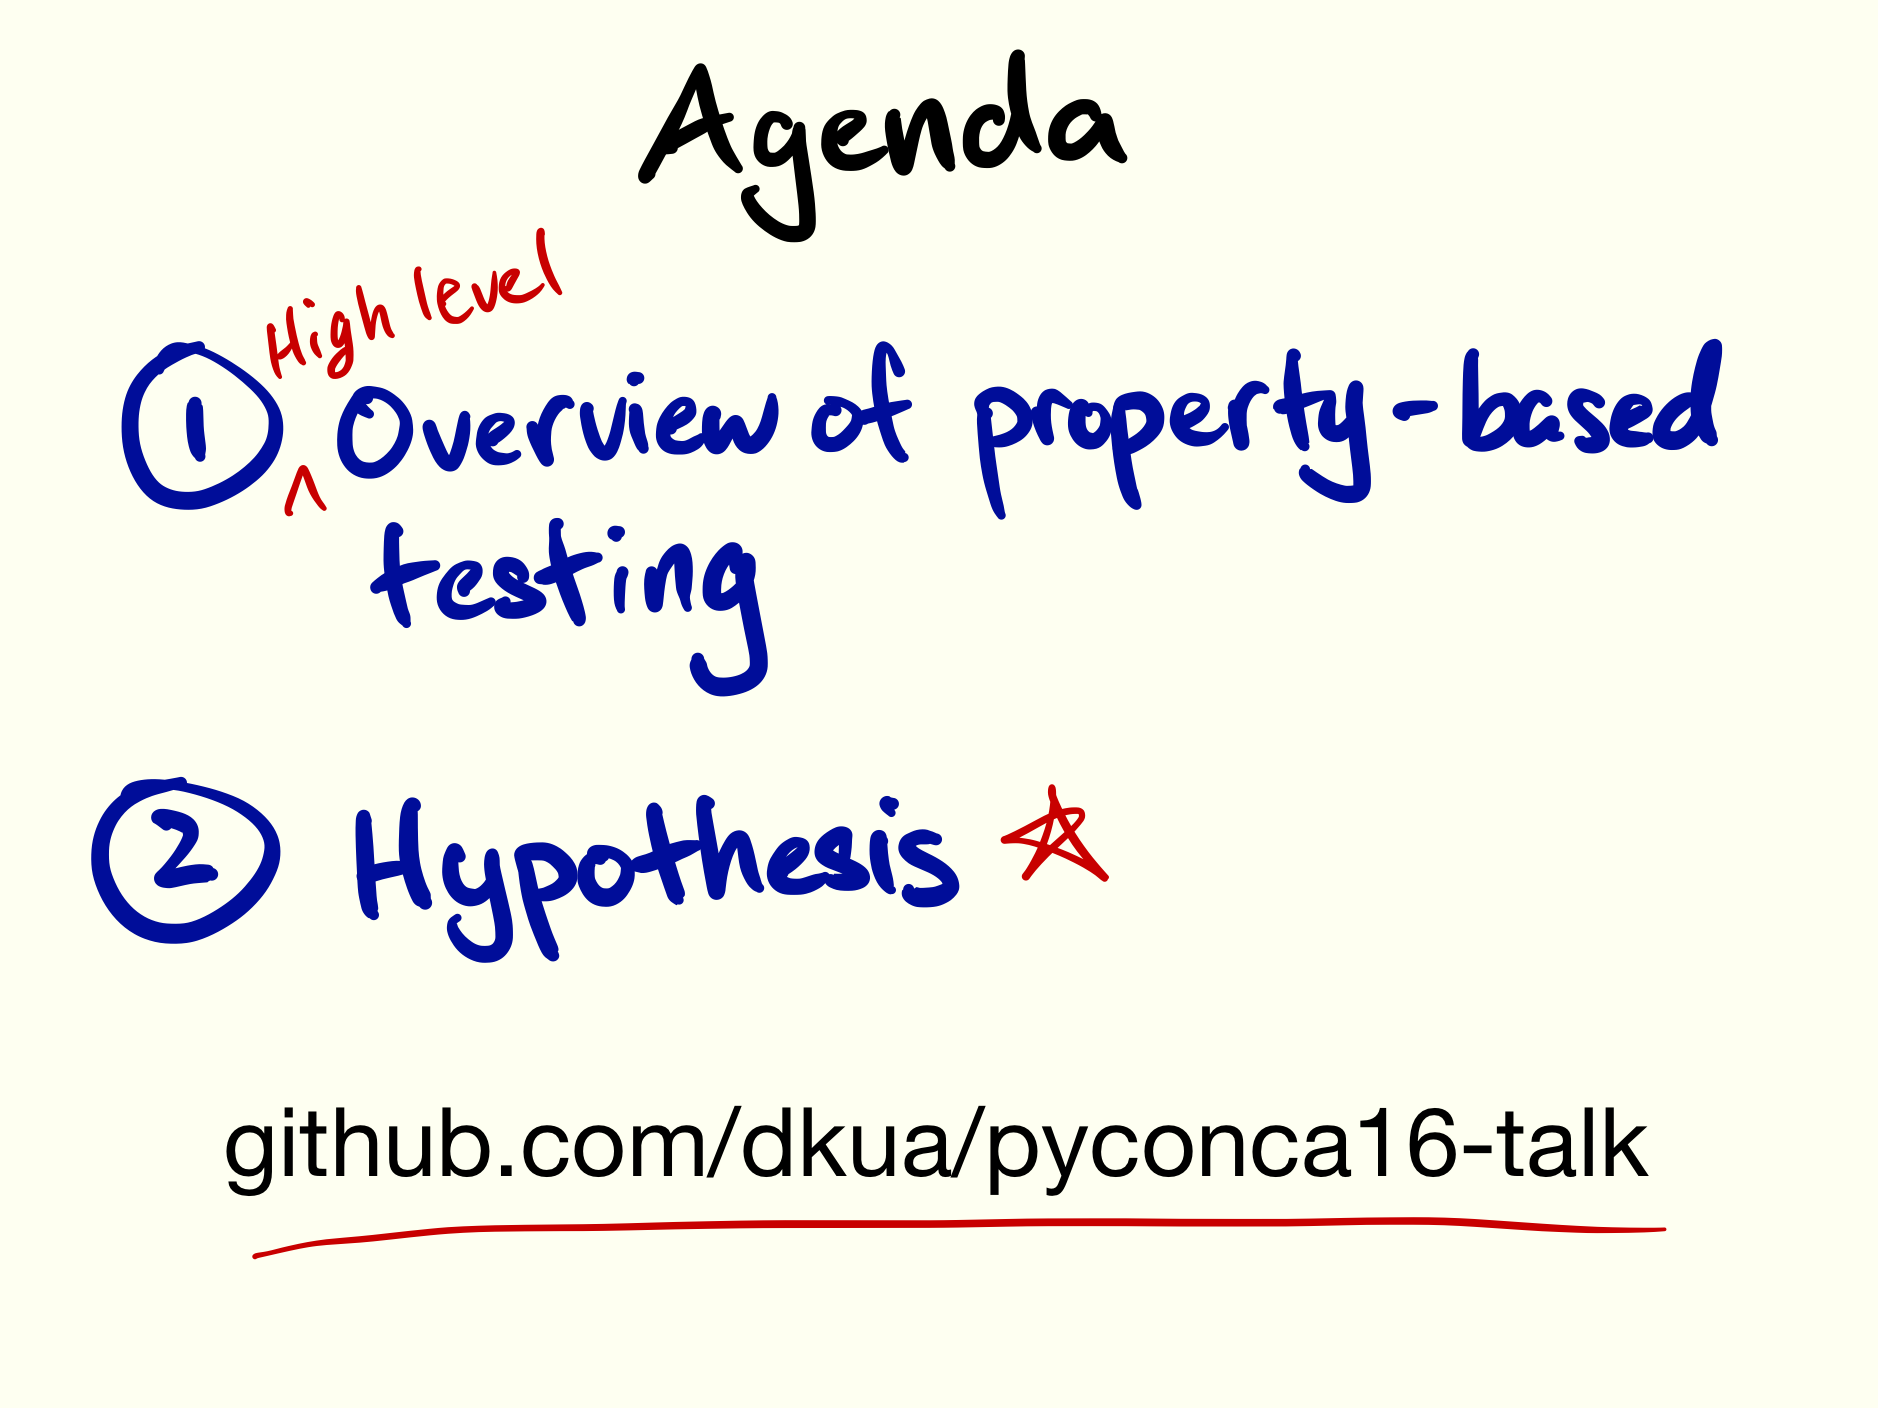 Agenda
High level
1 ^ Overview of property-based
testing
2 Hypothesis
github.com/dkua/pyconca16-talk